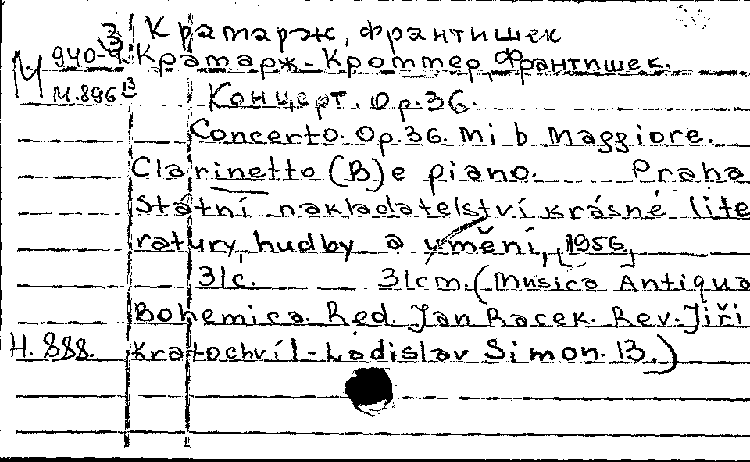 3 Крамарж, франтишек
М 940-9 Крамарж-Кроммер, Франтишек.
М.896 13 Концерт. Ор.36.
Concerto. Op.36. Mi b Maggiore.
Clarinetto (B) e piano. Praha
Státní nakladatelství krásné lite
ratury, hudby a umění, [1956]
31c. 31cm. (Musica Antiqua
Bohemica. Red. Jan Racek. Rev. Jiři
Н.888. Kratochvíl-Ladislav Šimon. 13.)